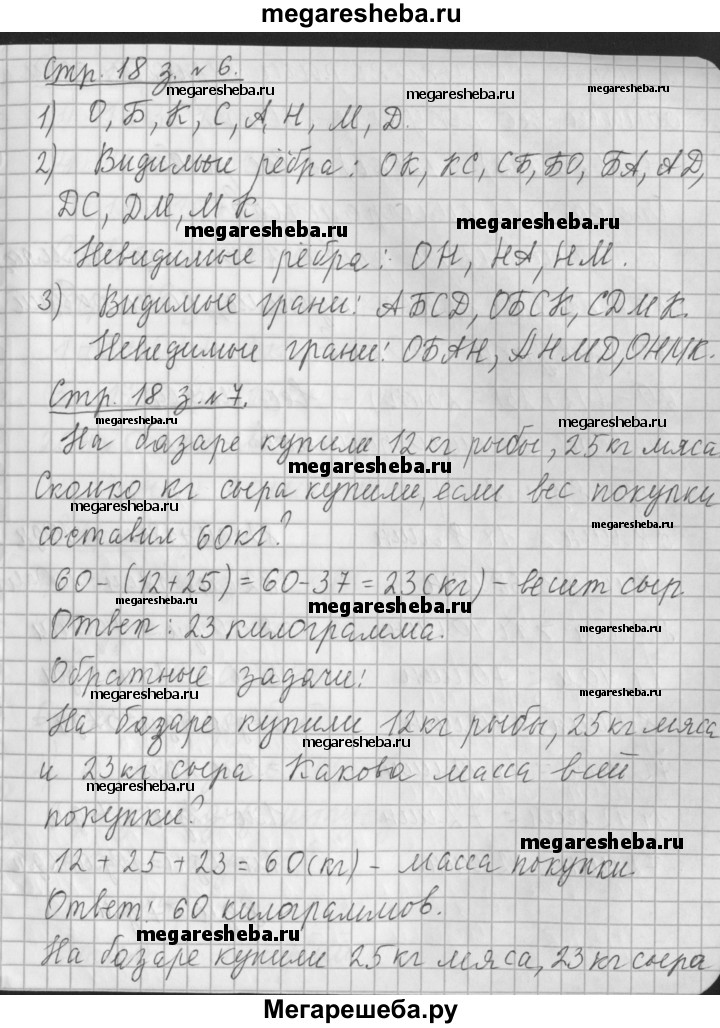 megaresheba.ru
Стр. 18 з. №6.
megaresheba.ru megaresheba.ru megaresheba.ru
1) О, Б, К, С, А, Н, М, Д.
2) Видимые рёбра: ОК, КС, СБ, БО, БА, АД,
ДС, ДМ, МК
megaresheba.ru megaresheba.ru
Невидимые рёбра: ОН, НА, НМ.
3) Видимые грани: АБСД, ОБСК, СДМК.
Невидимые грани: ОБАН, АНМД, ОНМК.
Стр. 18 з. №7.
megaresheba.ru megaresheba.ru
На базаре купили 12 кг рыбы, 25 кг мяса
megaresheba.ru
Сколько кг сыра купили, если вес покупки
megaresheba.ru megaresheba.ru
составил 60кг?
60-(12+25)=60-37=23(кг) - весит сыр.
megaresheba.ru megaresheba.ru
Ответ: 23 килограмма.
megaresheba.ru
Обратные задачи:
megaresheba.ru megaresheba.ru
На базаре купили 12кг рыбы, 25кг мяса
megaresheba.ru
и 23кг сыра. Какова масса всей
megaresheba.ru
покупки?
megaresheba.ru
12 + 25 + 23 = 60(кг) - масса покупки
Ответ: 60 килограммов.
megaresheba.ru
На базаре купили 25кг мяса, 23кг сыра
Мегарешеба.ру